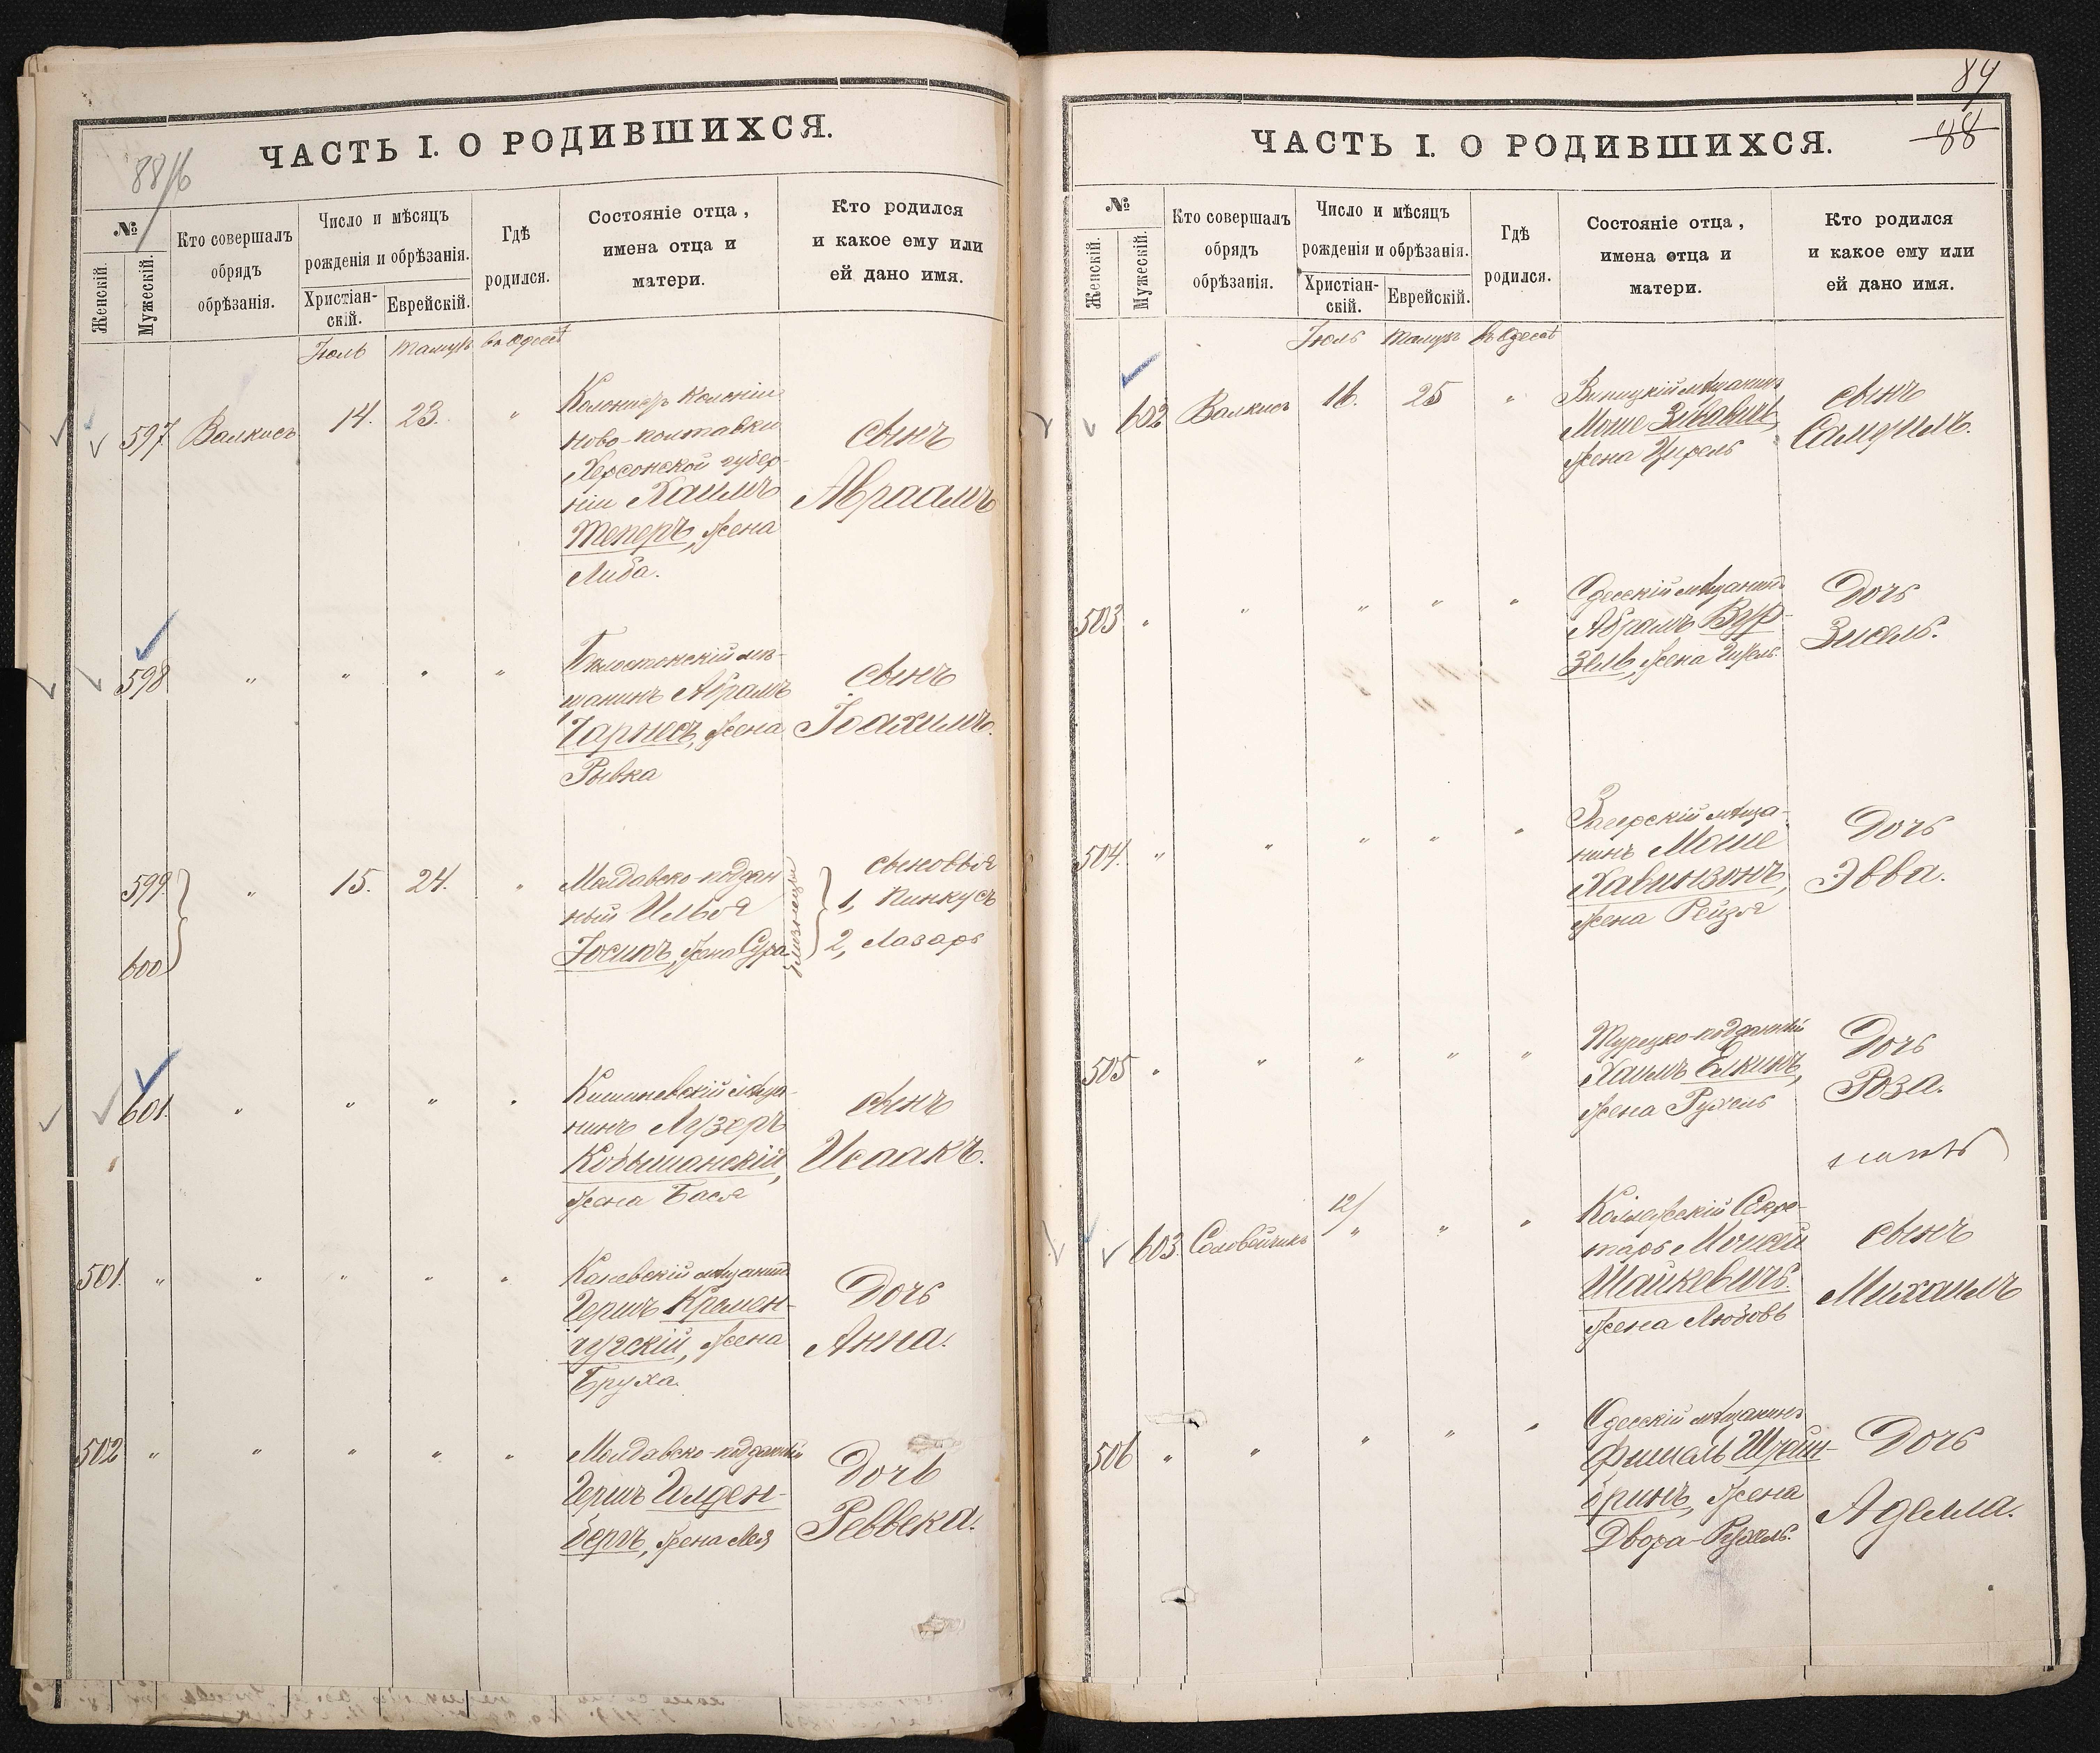 ЧАСТЬ I. О РОДИВШИХСЯ.
88/6
№
Женскій.
Мужескій.
Кто совершалъ
обрядъ
обрѣзанія.
Число и мѣсяцъ
рожденія и обрѣзанія.
Христіан-
скій.
Еврейскій.
Гдѣ
родился.
Состояніе отца,
имена отца и
матери.
Кто родился
и какое ему или
ей дано имя.
Іюль Тамузъ въ Одессѣ
597 Валкисъ 14. 23. "
Колонистъ колоніи
Ново-Полтавки
Херсонской губер-
ніи Хаимъ
Теперъ, жена
Либа.
сынъ
Авраамъ
598 " " " "
Бѣлостокскій мѣ-
щанинъ Абрамъ
Чарнесъ, жена
Рывка
сынъ
Іоахимъ.
599
600
" 15. 24. "
Молдавско-поддан
ный Илья
Іосипъ, жена Сура
близнецы
сыновья
1, Пинкусъ
2, Лазарь
601. " " " "
Кишиневскій мѣща-
нинъ Лузеръ
Кобышанскій,
жена Бася
сынъ
Исаакъ.
501. " " " " "
Каневскій мѣщанинъ
Гершъ Кремен-
чугскій, жена
Бруха.
Дочь
Анна.
502 " " " " "
Молдавско-подданный
Гершъ Голден-
бергъ, жена Лея
Дочь
Реввека.
84
88
ЧАСТЬ I. О РОДИВШИХСЯ.
№
Женскій.
Мужескій.
Кто совершалъ
обрядъ
обрѣзанія.
Число и мѣсяцъ
рожденія и обрѣзанія.
Христіан-
скій.
Еврейскій.
Гдѣ
родился.
Состояніе отца,
имена отца и
матери.
Кто родился
и какое ему или
ей дано имя.
Іюль Тамузъ въ Одессѣ
602 Валкисъ 16. 25 "
Виницкій мѣщанинъ
Моше
жена Цирель
сынъ
503 " " " " "
Одесскій мѣщанинъ
Абрамъ Вур-
зель, жена
Дочь
Зисель.
504. " " " " "
мѣща-
нинъ Моше
Хавинзонъ,
жена Рейзя
Дочь
Эвва.
505 " " " " "
Турецко-подданный
Хаимъ Елкинъ,
жена Рухель
Дочь
Роза.
603. Соловейчикъ 12/" " "
Коллежскій Секре-
тарь Моисей
Шайкевичъ.
жена Любовь
сынъ
Михаилъ
506 " " " " "
Одесскій мѣщанинъ
Фишель Штейн-
бринъ, жена
Двора-Рухель.
Дочь
Аделла.